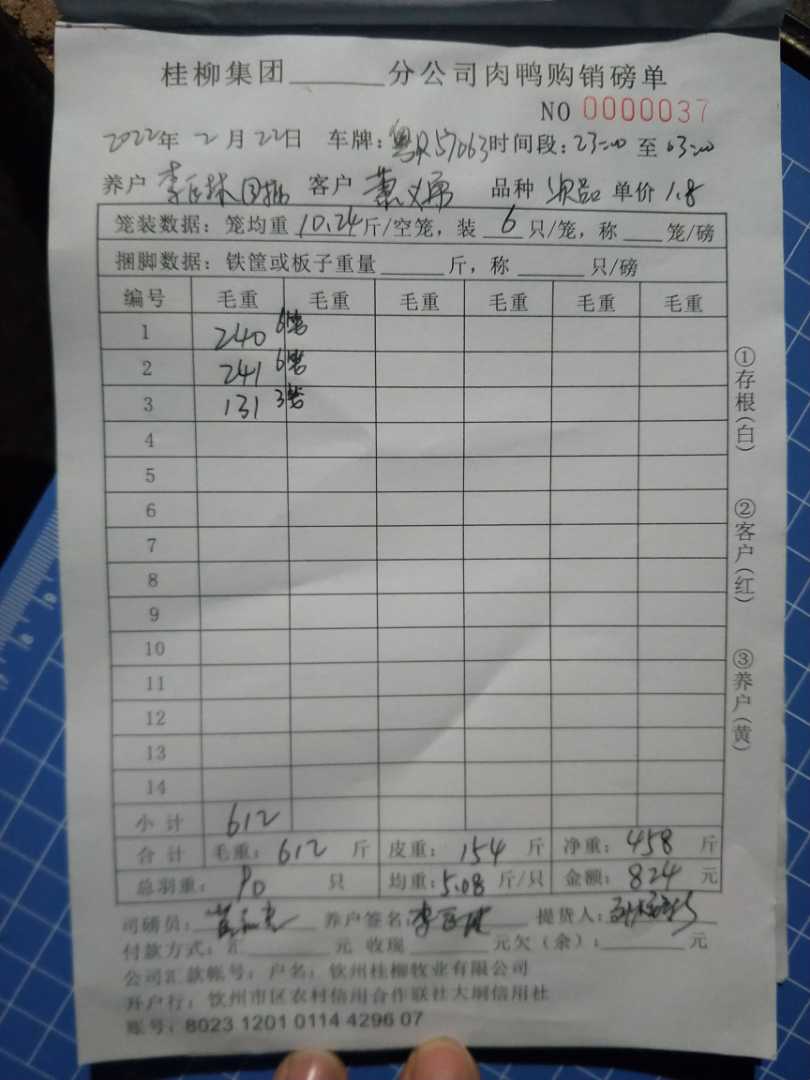 桂柳集团______分公司肉鸭购销磅单
NO 0000037
2022年 2月22日 车牌:粤R57063时间段:23:00 至 03:00
养户 李 客户 萧 品种 次品 单价 1.8
笼装数据:笼均重 10.24斤/空笼,装 6 只/笼,称 ___ 笼/磅
捆脚数据:铁筐或板子重量 _____ 斤,称 _____ 只/磅
编号 毛重 毛重 毛重 毛重 毛重 毛重
1 240 6笼
2 241 6笼
3 131 3笼
4
5
6
7
8
9
10
11
12
13
14
小 计 612
合 计 毛重: 612 斤 皮重: 154 斤 净重: 458 斤
总羽重: 90 只 均重:5.08 斤/只 金额: 824 元
司磅员: 养户签名:李 提货人:
付款方式:汇________元 收现________元欠(余):________元
公司汇款帐号:户名:钦州桂柳牧业有限公司
开户行:钦州市区农村信用合作联社大垌信用社
账号:8023 1201 0114 4296 07
①存根(白)
②客户(红)
③养户(黄)